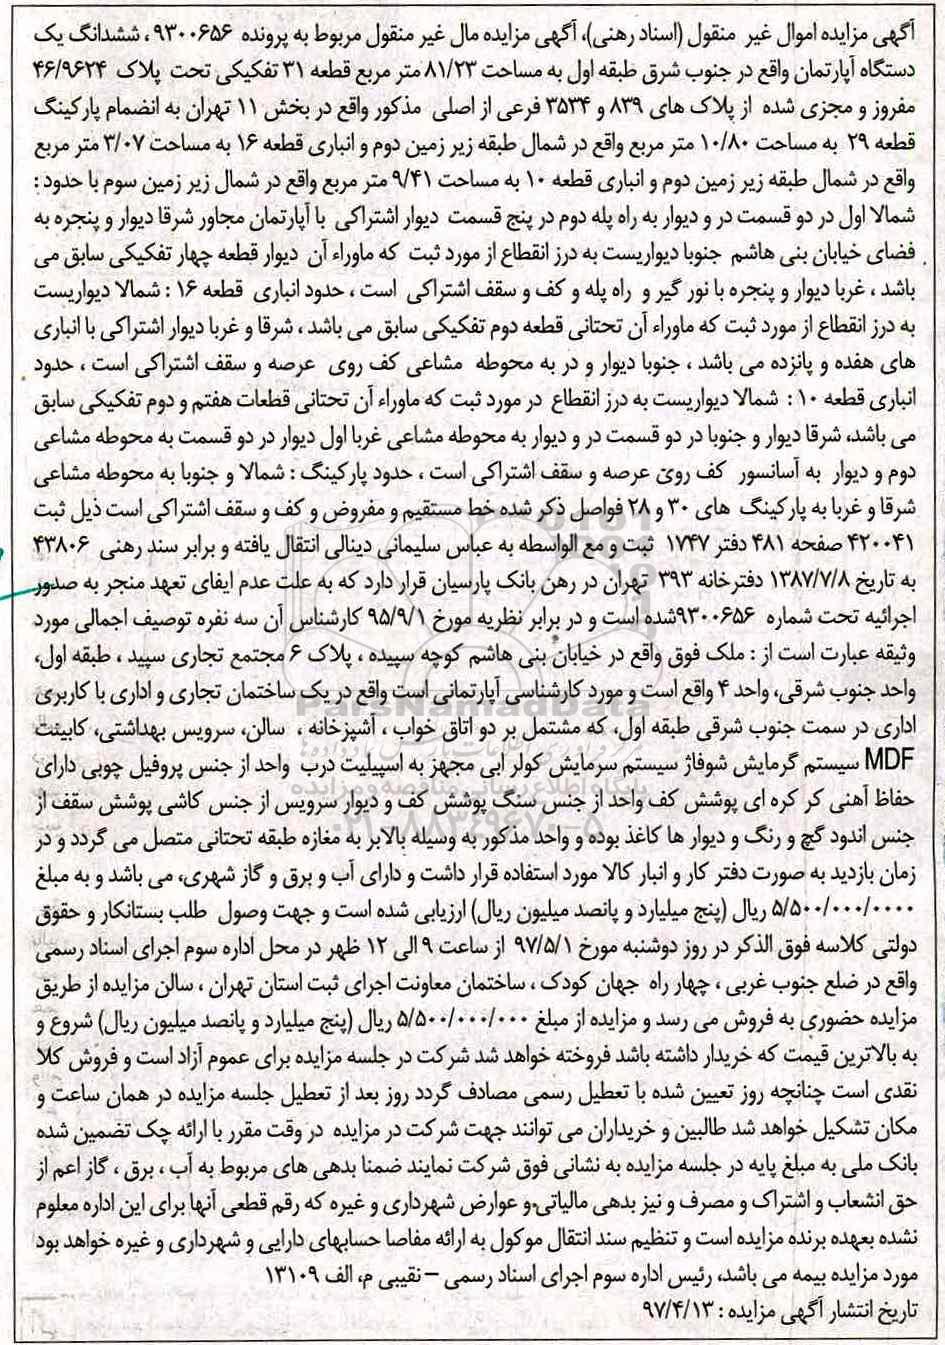 آگهی مزایده اموال غیر منقول (اسناد رهنی)، آگهی مزایده مال غیر منقول مربوط به پرونده ۹۳۰۰۶۵۶ ، ششدانگ یک
دستگاه آپارتمان واقع در جنوب شرق طبقه اول به مساحت ۸۱/۲۳ متر مربع قطعه ۳۱ تفکیکی تحت پلاک ۴۶/۹۶۲۴
مفروز و مجزی شده از پلاک های ۸۳۹ و ۳۵۳۴ فرعی از اصلی مذکور واقع در بخش ۱۱ تهران به انضمام پارکینگ
قطعه ۲۹ به مساحت ۱۰/۸۰ متر مربع واقع در شمال طبقه زیر زمین دوم و انباری قطعه ۱۶ به مساحت ۳/۰۷ متر مربع
واقع در شمال طبقه زیر زمین دوم و انباری قطعه ۱۰ به مساحت ۹/۴۱ متر مربع واقع در شمال زیر زمین سوم با حدود :
شمالا اول در دو قسمت در و دیوار به راه پله دوم در پنج قسمت دیوار اشتراکی با آپارتمان مجاور شرقا دیوار و پنجره به
فضای خیابان بنی هاشم جنوبا دیواریست به درز انقطاع از مورد ثبت که ماوراء آن دیوار قطعه چهار تفکیکی سابق می
باشد ، غربا دیوار و پنجره با نور گیر و راه پله و کف و سقف اشتراکی است ، حدود انباری قطعه ۱۶ : شمالا دیواریست
به درز انقطاع از مورد ثبت که ماوراء آن تحتانی قطعه دوم تفکیکی سابق می باشد ، شرقا و غربا دیوار اشتراکی با انباری
های هفده و پانزده می باشد ، جنوبا دیوار و در به محوطه مشاعی کف روی عرصه و سقف اشتراکی است ، حدود
انباری قطعه ۱۰ : شمالا دیواریست به درز انقطاع در مورد ثبت که ماوراء آن تحتانی قطعات هفتم و دوم تفکیکی سابق
می باشد، شرقا دیوار و جنوبا در دو قسمت در و دیوار به محوطه مشاعی غربا اول دیوار در دو قسمت به محوطه مشاعی
دوم و دیوار به آسانسور کف روی عرصه و سقف اشتراکی است ، حدود پارکینگ : شمالا و جنوبا به محوطه مشاعی
شرقا و غربا به پارکینگ های ۳۰ و ۲۸ فواصل ذکر شده خط مستقیم و مفروض و کف و سقف اشتراکی است ذیل ثبت
۴۲۰۰۴۱ صفحه ۴۸۱ دفتر ۱۷۴۷ ثبت و مع الواسطه به عباس سلیمانی دینالی انتقال یافته و برابر سند رهنی ۴۳۸۰۶
به تاریخ ۱۳۸۷/۷/۸ دفترخانه ۳۹۳ تهران در رهن بانک پارسیان قرار دارد که به علت عدم ایفای تعهد منجر به صدور
اجرائیه تحت شماره ۹۳۰۰۶۵۶شده است و در برابر نظریه مورخ ۹۵/۹/۱ کارشناس آن سه نفره توصیف اجمالی مورد
وثیقه عبارت است از : ملک فوق واقع در خیابان بنی هاشم کوچه سپیده ، پلاک ۶ مجتمع تجاری سپید ، طبقه اول،
واحد جنوب شرقی، واحد ۴ واقع است و مورد کارشناسی آپارتمانی است واقع در یک ساختمان تجاری و اداری با کاربری
اداری در سمت جنوب شرقی طبقه اول، که مشتمل بر دو اتاق خواب ، آشپزخانه ، سالن، سرویس بهداشتی، کابینت
MDF سیستم گرمایش شوفاژ سیستم سرمایش کولر آبی مجهز به اسپیلیت درب واحد از جنس پروفیل چوبی دارای
حفاظ آهنی کر کره ای پوشش کف واحد از جنس سنگ پوشش کف و دیوار سرویس از جنس کاشی پوشش سقف از
جنس اندود گچ و رنگ و دیوار ها کاغذ بوده و واحد مذکور به وسیله بالابر به مغازه طبقه تحتانی متصل می گردد و در
زمان بازدید به صورت دفتر کار و انبار کالا مورد استفاده قرار داشت و دارای آب و برق و گاز شهری، می باشد و به مبلغ
۵/۵۰۰/۰۰۰/۰۰۰۰ ریال (پنج میلیارد و پانصد میلیون ریال) ارزیابی شده است و جهت وصول طلب بستانکار و حقوق
دولتی کلاسه فوق الذکر در روز دوشنبه مورخ ۹۷/۵/۱ از ساعت ۹ الی ۱۲ ظهر در محل اداره سوم اجرای اسناد رسمی
واقع در ضلع جنوب غربی ، چهار راه جهان کودک ، ساختمان معاونت اجرای ثبت استان تهران ، سالن مزایده از طریق
مزایده حضوری به فروش می رسد و مزایده از مبلغ ۵/۵۰۰/۰۰۰/۰۰۰ ریال (پنج میلیارد و پانصد میلیون ریال) شروع و
به بالاترین قیمت که خریدار داشته باشد فروخته خواهد شد شرکت در جلسه مزایده برای عموم آزاد است و فروش کلا
نقدی است چنانچه روز تعیین شده با تعطیل رسمی مصادف گردد روز بعد از تعطیل جلسه مزایده در همان ساعت و
مکان تشکیل خواهد شد طالبین و خریداران می توانند جهت شرکت در مزایده در وقت مقرر با ارائه چک تضمین شده
بانک ملی به مبلغ پایه در جلسه مزایده به نشانی فوق شرکت نمایند ضمنا بدهی های مربوط به آب ، برق ، گاز اعم از
حق انشعاب و اشتراک و مصرف و نیز بدهی مالیاتی و عوارض شهرداری و غیره که رقم قطعی آنها برای این اداره معلوم
نشده بعهده برنده مزایده است و تنظیم سند انتقال موکول به ارائه مفاصا حسابهای دارایی و شهرداری و غیره خواهد بود
مورد مزایده بیمه می باشد، رئیس اداره سوم اجرای اسناد رسمی – نقیبی م، الف ۱۳۱۰۹
تاریخ انتشار آگهی مزایده : ۹۷/۴/۱۳
ParsNamadData
پایگاه اطلاع رسانی مناقصه و مزایده
۰۲۱-۸۸۳۴۹۶۷۰-۵